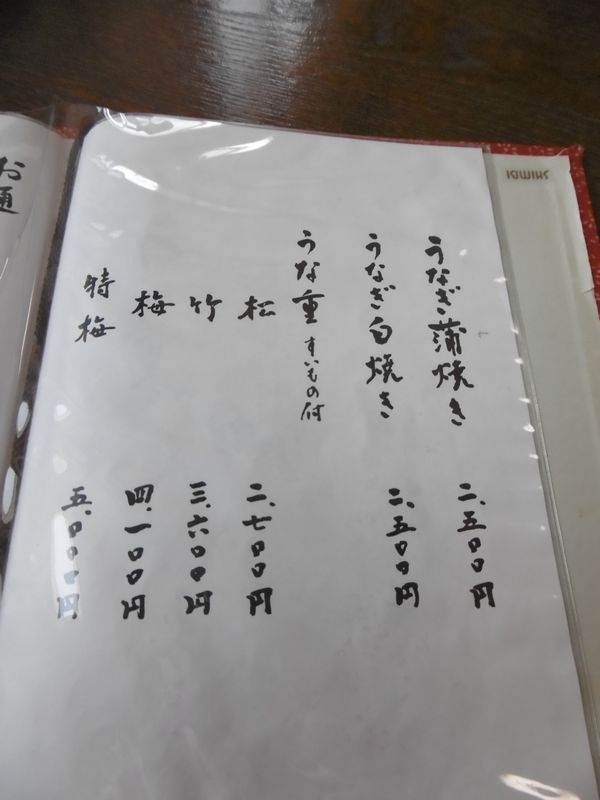 うなぎ蒲焼き 二、五〇〇円
うなぎ白焼き 二、五〇〇円
うな重 すいもの付
松 二、七〇〇円
竹 三、六〇〇円
梅 四、一〇〇円
特梅 五、〇〇〇円
お通
SHIMBI